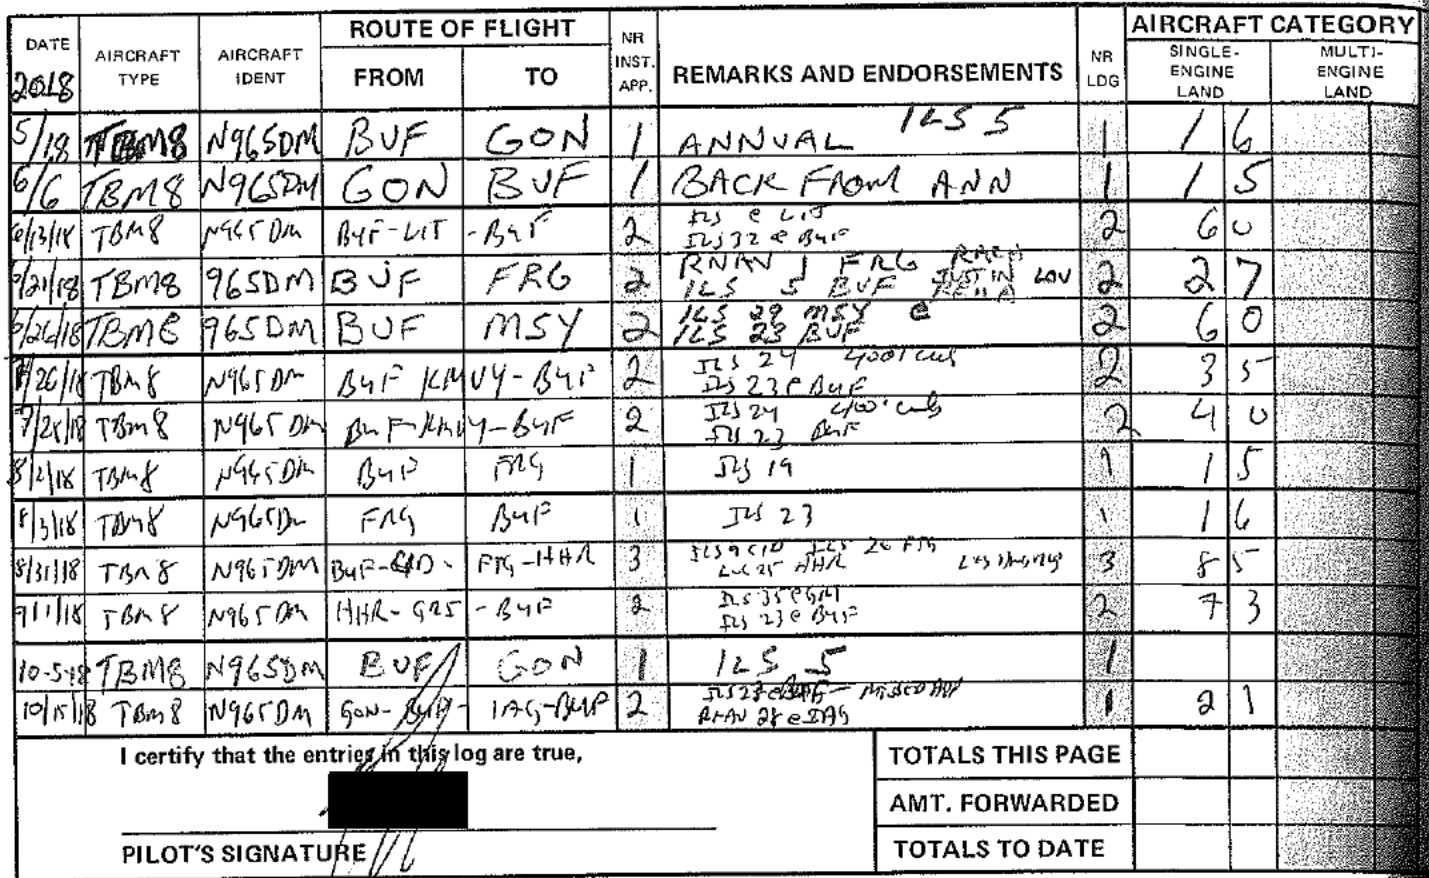 DATE 2018 AIRCRAFT TYPE AIRCRAFT IDENT ROUTE OF FLIGHT FROM TO NR INST. APP. REMARKS AND ENDORSEMENTS NR LDG AIRCRAFT CATEGORY SINGLE-ENGINE LAND MULTI-ENGINE LAND
5/18 TBM8 N965DM BUF GON 1 ANNUAL ILS 5 1 1 6
6/6 TBM8 N965DM GON BUF 1 BACK FROM ANN 1 1 5
6/13/18 TBM8 N965DM BUF-LIT -BUF 2 ILS @ LIT 2 6 0
ILS 32 @ BUF
/21/18 TBM8 965DM BUF FRG 2 RNAV 1 FRG 2 2 7
ILS 5 BUF JUSTIN
6/26/18 TBM8 965DM BUF MSY 2 ILS 29 MSY @ 2 6 0
ILS 23 BUF
/26/18 TBM8 N965DM BUF KMVY-BUF 2 ILS 24 400' 2 3 5
ILS 23 @ BUF
7/28/18 TBM8 N965DM BUF-KMVY-BUF 2 ILS 24 400' 2 4 0
ILS 23 BUF
8/2/18 TBM8 N965DM BUF FRG 1 ILS 19 1 1 5
8/3/18 TBM8 N965DM FRG BUF 1 ILS 23 1 1 6
8/31/18 TBM8 N965DM BUF- - -HHR 3 ILS 9 CID ILS 26 3 8 5
LOC 25 HHR
9/1/18 TBM8 N965DM HHR- -BUF 2 ILS 35 @ 2 7 3
ILS 23 @ BUF
10-5-18 TBM8 N965DM BUF GON 1 ILS 5 1
10/15/18 TBM8 N965DM GON-BUF- IAG-BUF 2 ILS 23 @ BUF - MISSED APP 1 2 1
RNAV 28 @ IAG
I certify that the entries in this log are true,
PILOT'S SIGNATURE
TOTALS THIS PAGE
AMT. FORWARDED
TOTALS TO DATE